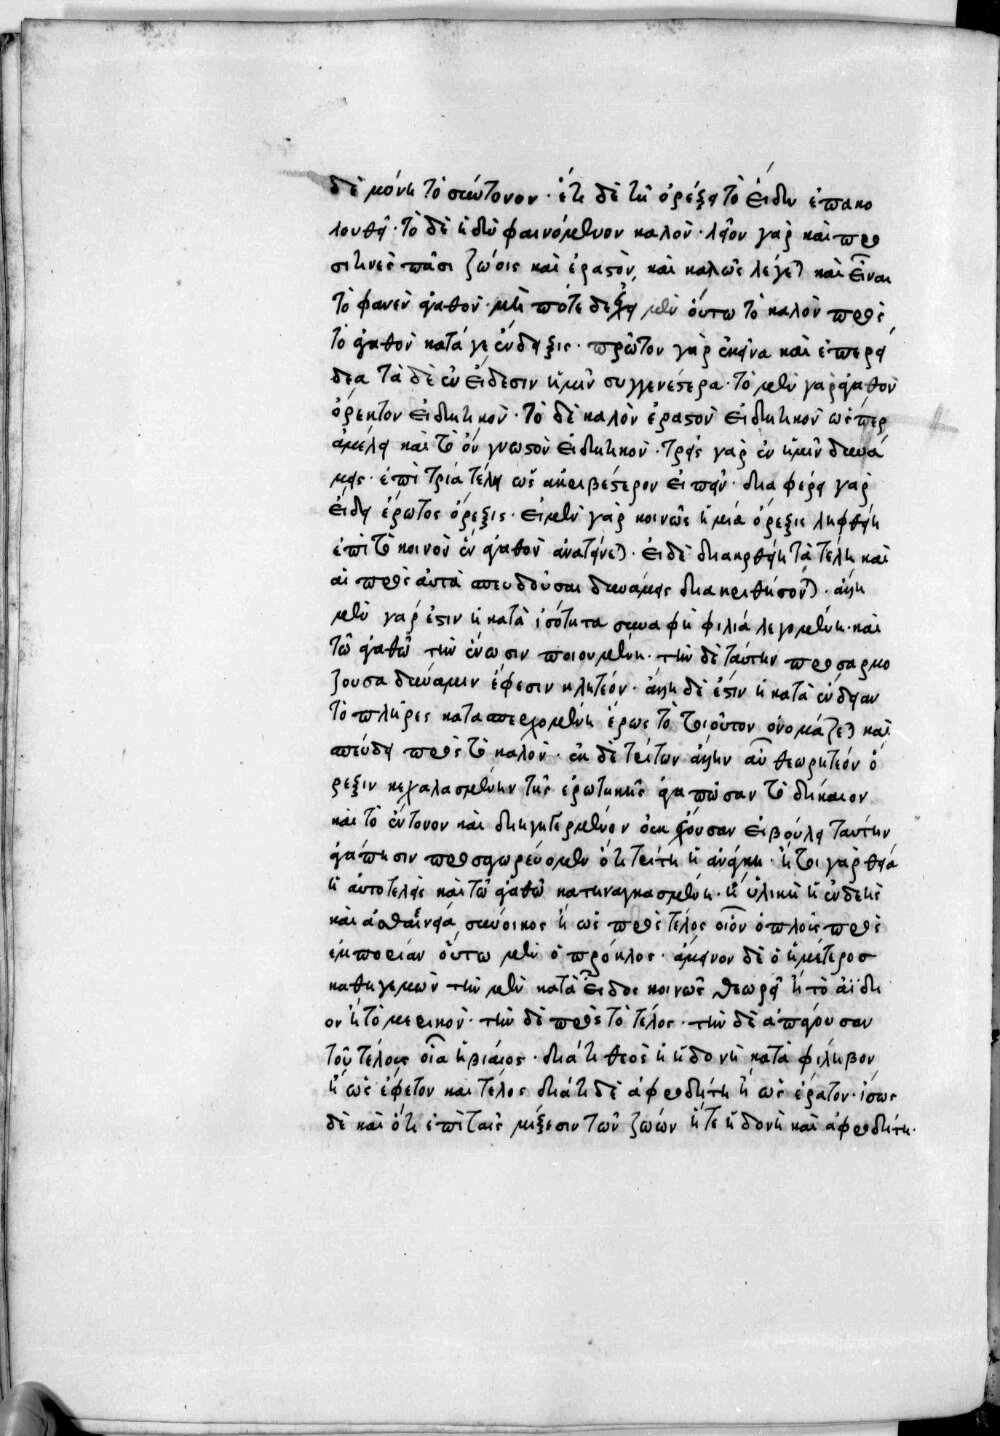 δὲ μόνη τὸ σύντονον · ἔτι δὲ τῇ ὀρέξει τὸ ἥδειν ἐπακο
λουθεῖ · τὸ δὲ ἡδὺ φαινόμενον καλὸν · λεῖον γὰρ καὶ προ
σηνὲς πᾶσι ζώοις καὶ ἐραστὸν, καὶ καλῶς λέγεται καὶ εἶναι
τὸ φανὲν ἀγαθὸν · μή ποτε δέχῃ μὲν οὕτω τὸ καλὸν πρὸς
τὸ ἀγαθὸν κατά γε ἔνδειξις · πρῶτον γὰρ ἐκεῖνα καὶ ὑπερεί
δεα τὰ δὲ ἐν εἴδεσιν ἡμῖν συγγενέστερα · τὸ μὲν γὰρ ἀγαθὸν
ὀρεκτὸν εἰδητικὸν · τὸ δὲ καλὸν ἐραστὸν εἰδητικὸν ὥσπερ
ἀμέλει καὶ τὸ ὂν γνωστὸν εἰδητικὸν · τρεῖς γὰρ ἐν ἡμῖν δυνά
μεις · ἐπὶ τρία τέλη ὡς ἀκριβέστερον εἰπεῖν · διαφέρει γὰρ
εἴδει ἔρωτος ὄρεξις · εἰ μὲν γὰρ κοινῶς ἡ μία ὄρεξις ληφθείη
ἐπὶ τὸ κοινὸν ἓν ἀγαθὸν ἀνατείνεται · εἰ δὲ διακριθείη τὰ τέλη καὶ
αἱ πρὸς αὐτὰ σπεύδουσαι δυνάμεις διακριθήσονται · ἄλλη
μὲν γάρ ἐστιν ἡ κατὰ ἰσότητα συναφὴ φιλία λεγομένη · καὶ
τῷ ἀγαθῷ τὴν ἕνωσιν ποιουμένη · τὴν δὲ ταύτην προσαρμό
ζουσα δύναμιν ἔφεσιν κλητέον · ἄλλη δέ ἐστιν ἡ κατὰ ἔνδειαν
τὸ πλῆρες κατασπερχομένη ἔρως τὸ τοιοῦτον ὀνομάζεται καὶ
σπεύδει πρὸς τὸ καλὸν · ἐκ δὲ τρίτων ἄλλην αὖ θεωρητέον ὄ
ρεξιν κεχαλασμένην τῆς ἐρωτικῆς ἀγαπῶσαν τὸ δίκαιον
καὶ τὸ ἔντονον καὶ διηγηγερμένον οὐκ ἔχουσαν εἰ βούλει ταύτην
ἀγάπησιν προσαγορεύομεν ὅτι τρίτη ἡ ἀνάγκη · ἤτοι γὰρ θεία
ἡ αὐτοτελὴς καὶ τῷ ἀγαθῷ κατηναγκασμένη · ἢ ὑλικὴ ἡ ἐνδεὴς
καὶ ἀσθένεια σύνοικος ἢ ὡς πρὸς τέλος οἷον ὁ πλοῦς πρὸς
ἐμπορίαν οὕτω μὲν ὁ πρόκλος · ἄμεινον δὲ ὁ ἡμέτερος
καθηγεμὼν τὴν μὲν κατὰ εἶδος κοινῶς θεωρεῖ ἢ τὸ ἀΐδι
ον ἢ τὸ μερικὸν · τὴν δὲ πρὸς τὸ τέλος · τὴν δὲ ἀπάγουσαν
τοῦ τέλους οἵα ἡ βίαιος · διὰ τί θεὸς ἡ ἡδονὴ κατὰ φίληβον
ἢ ὡς ἐφετὸν καὶ τέλος διὰ τί δὲ ἀφροδίτη ἢ ὡς ἐρατὸν · ἴσως
δὲ καὶ ὅτι ἐπὶ ταῖς μίξεσιν τῶν ζώων ἥ τε ἡδονὴ καὶ ἀφροδίτη ·